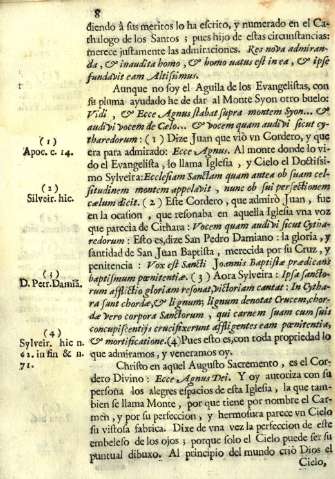 8
diendo à sus meritos lo ha escrito, y numerado en el Ca-
thalogo de los Santos; pues hijo de estas circunstancias:
merece justamente las admiraciones. Res nova admiran-
da, & inaudita homo, & homo natus est in ea, & ipse
fundavit eam Altissimus.
Aunque no soy el Aguila de los Evangelistas, con
su pluma ayudado he de dar al Monte Syon otro buelo:
Vidi, & Ecce Agnus stabat supra montem Syon... &
audivi vocem de Cælo... & vocem quam audivi sicut cy-
tharedorum: (1) Dize Juan que viò vn Cordero, y que
era para admirado: Ecce Agnus. Al monte donde lo vi-
do el Evangelista, lo llama Iglesia, y Cielo el Doctissi-
mo Sylveira: Ecclesiam Sanctam quam antea ob suam cel-
situdinem montem appelavit, nunc ob sui perfectionem
cælum dicit. (2) Este Cordero, que admirò Juan, fue
en la ocasion, que resonaba en aquella Iglesia vna voz
que parecia de Cithara: Vocem quam audivi sicut Cytha-
redorum: Esto es, dize San Pedro Damiano: la gloria, y
santidad de San Juan Baptista, merecida por su Cruz, y
penitencia: Vox est Sancti Joannis Baptistæ prædicans
baptismum pœnitentiæ. (3) Aora Sylveira: Ipsa sancto-
rum afflictio gloriam resonat, victoriam cantat: In Cytha-
ra sunt chordæ, & lignum; lignum denotat Crucem, chor-
dæ vero corpora Sanctorum, qui carnem suam cum suis
concupiscentijs crucifixerunt affligentes eam pœnitentia,
& mortificatione. (4) Pues esto es, con toda propriedad lo
que admiramos, y veneramos oy.
Christo en aquel Augusto Sacramento, es el Cor-
dero Divino: Ecce Agnus Dei. Y oy autoriza con su
persona los alegres espacios de esta Iglesia, la que tam-
bien se llama Monte, por que tiene por nombre el Car-
men, y por su perfeccion, y hermosura parece vn Cielo
su vistosa fabrica. Dixe de vna vez la perfeccion de este
embeleso de los ojos; porque solo el Cielo puede ser su
puntual dibuxo. Al principio del mundo criò Dios el
Cielo,
(1)
Apoc. c. 14.
(2)
Silveir. hic.
(3)
D. Petr. Damiã.
(4)
Sylveir. hic n.
61. in fin & n.
71.